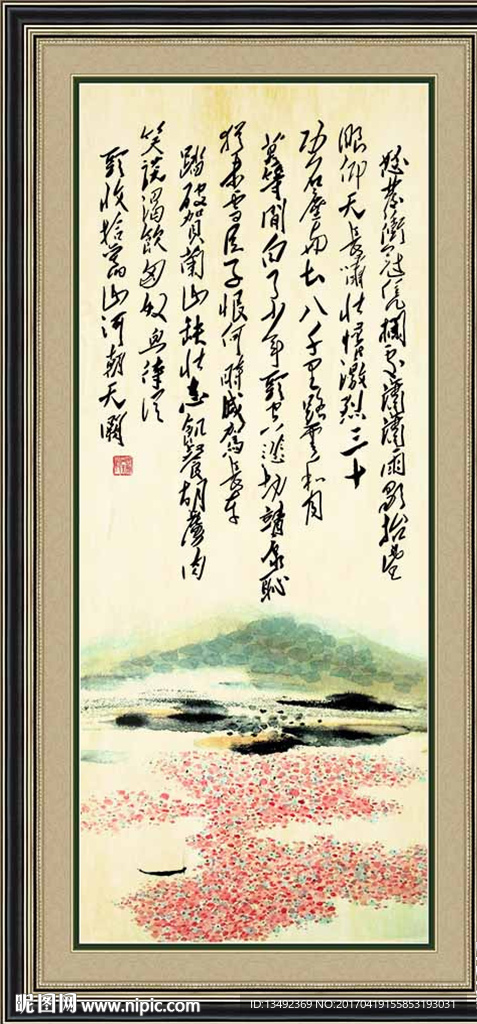 怒发冲冠凭栏处潇潇雨歇抬望
眼仰天长啸壮怀激烈三十
功名尘与土八千里路云和月
莫等闲白了少年头空悲切靖康耻
犹未雪臣子恨何时灭驾长车
踏破贺兰山缺壮志饥餐胡虏肉
笑谈渴饮匈奴血待从
头收拾旧山河朝天阙
昵图网 www.nipic.com
ID:13492369 NO:20170419155853193031